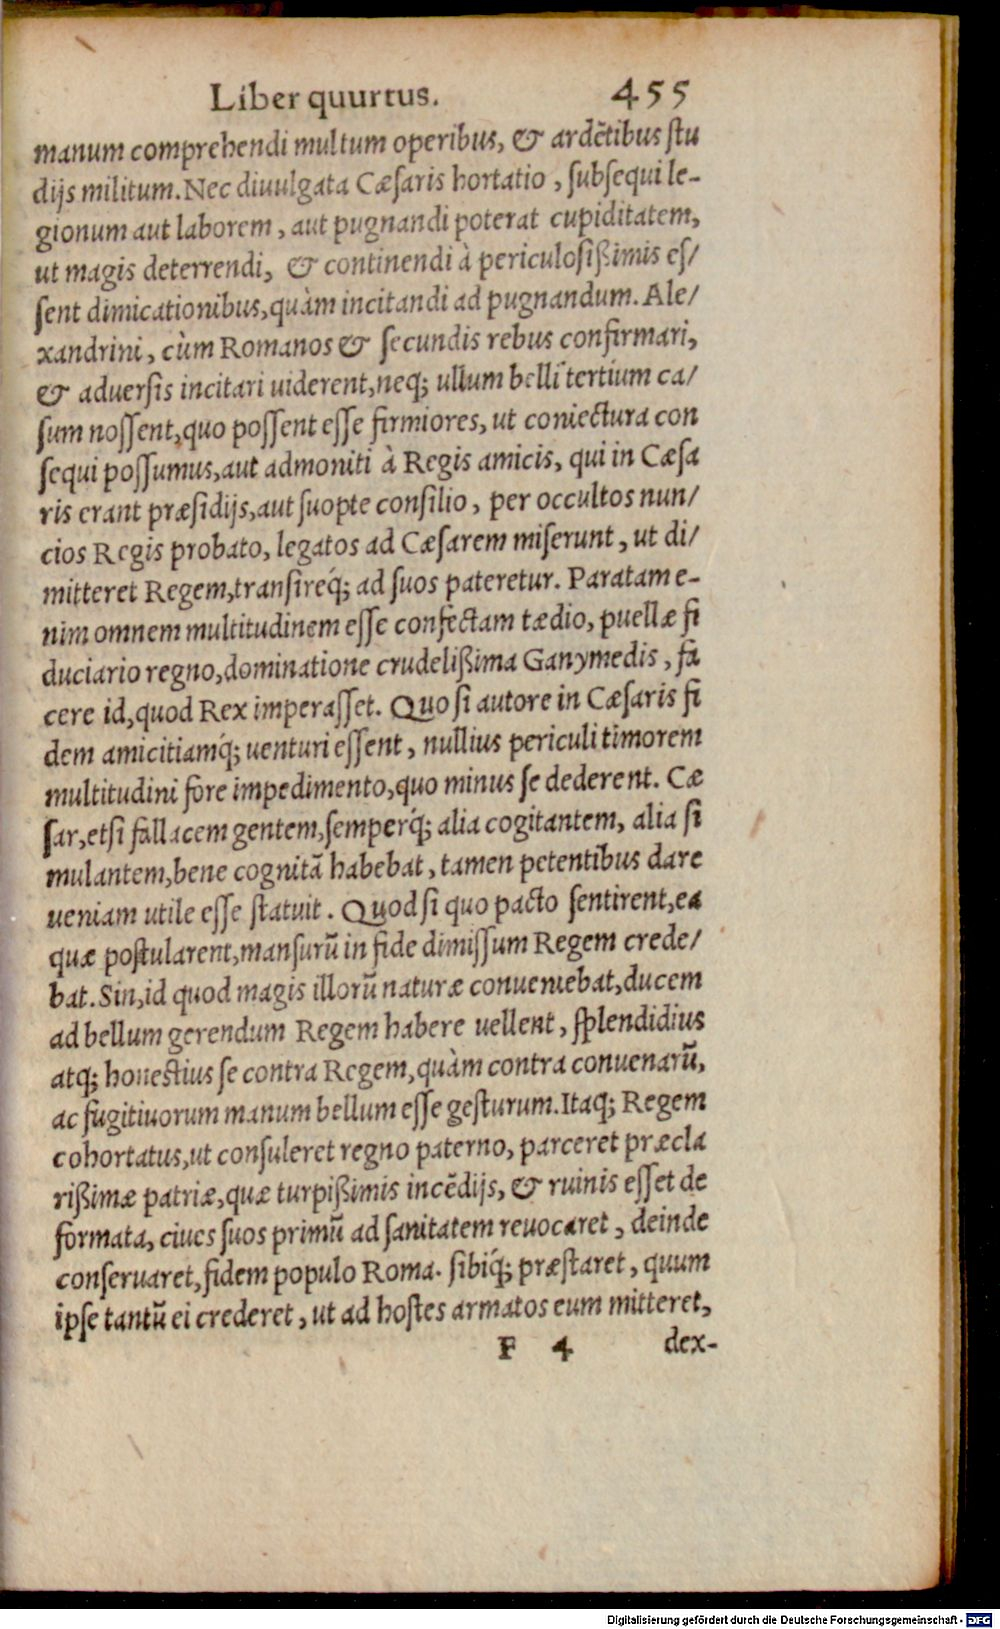 Liber quurtus. 455
manum comprehendi multum operibus, & ardẽtibus ſtu
dijs militum. Nec diuulgata Cæſaris hortatio, ſubſequi le-
gionum aut laborem, aut pugnandi poterat cupiditatem,
ut magis deterrendi, & continendi à periculoſißimis eſ/
ſent dimicationibus, quàm incitandi ad pugnandum. Ale/
xandrini, cùm Romanos & ſecundis rebus confirmari,
& aduerſis incitari uiderent, neq; ullum belli tertium ca/
ſum noſſent, quo poſſent eſſe firmiores, ut coniectura con
ſequi poſſumus, aut admoniti à Regis amicis, qui in Cæſa
ris erant præſidijs, aut ſuopte conſilio, per occultos nun/
cios Regis probato, legatos ad Cæſarem miſerunt, ut di/
mitteret Regem, tranſireq́; ad ſuos pateretur. Paratam e-
nim omnem multitudinem eſſe confectam tædio, puellæ fi
duciario regno, dominatione crudelißima Ganymedis, fa
cere id, quod Rex imperaſſet. Quo ſi autore in Cæſaris fi
dem amicitiamq́; uenturi eſſent, nullius periculi timorem
multitudini fore impedimento, quo minus ſe dederent. Cæ
ſar, etſi fallacem gentem, ſemperq́; alia cogitantem, alia ſi
mulantem, bene cognitã habebat, tamen petentibus dare
ueniam utile eſſe ſtatuit. Quod ſi quo pacto ſentirent, ea
quæ poſtularent, manſurũ in fide dimiſſum Regem crede/
bat. Sin, id quod magis illorũ naturæ conueniebat, ducem
ad bellum gerendum Regem habere uellent, ſplendidius
atq; honeſtius ſe contra Regem, quàm contra conuenarũ,
ac fugitiuorum manum bellum eſſe geſturum. Itaq; Regem
cohortatus, ut conſuleret regno paterno, parceret præcla
rißimæ patriæ, quæ turpißimis incẽdijs, & ruinis eſſet de
formata, ciues ſuos primũ ad ſanitatem reuocaret, deinde
conſeruaret, fidem populo Roma. ſibiq́; præſtaret, quum
ipſe tantũ ei crederet, ut ad hoſtes armatos eum mitteret,
F 4 dex-
Digitalisierung gefördert durch die Deutsche Forschungsgemeinschaft - DFG